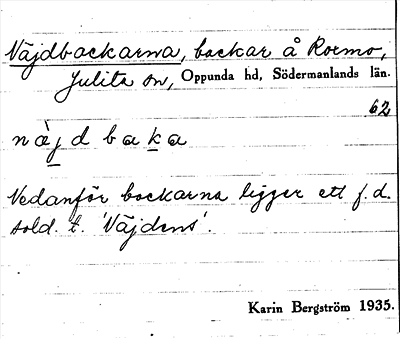 Väjdbackarna, backar å Roxmo,
Julita sn, Oppunda hd, Södermanlands län.
62
Nedanför backarna ligger ett f.d.
sold. t. 'Väjdens'.
Karin Bergström 1935.